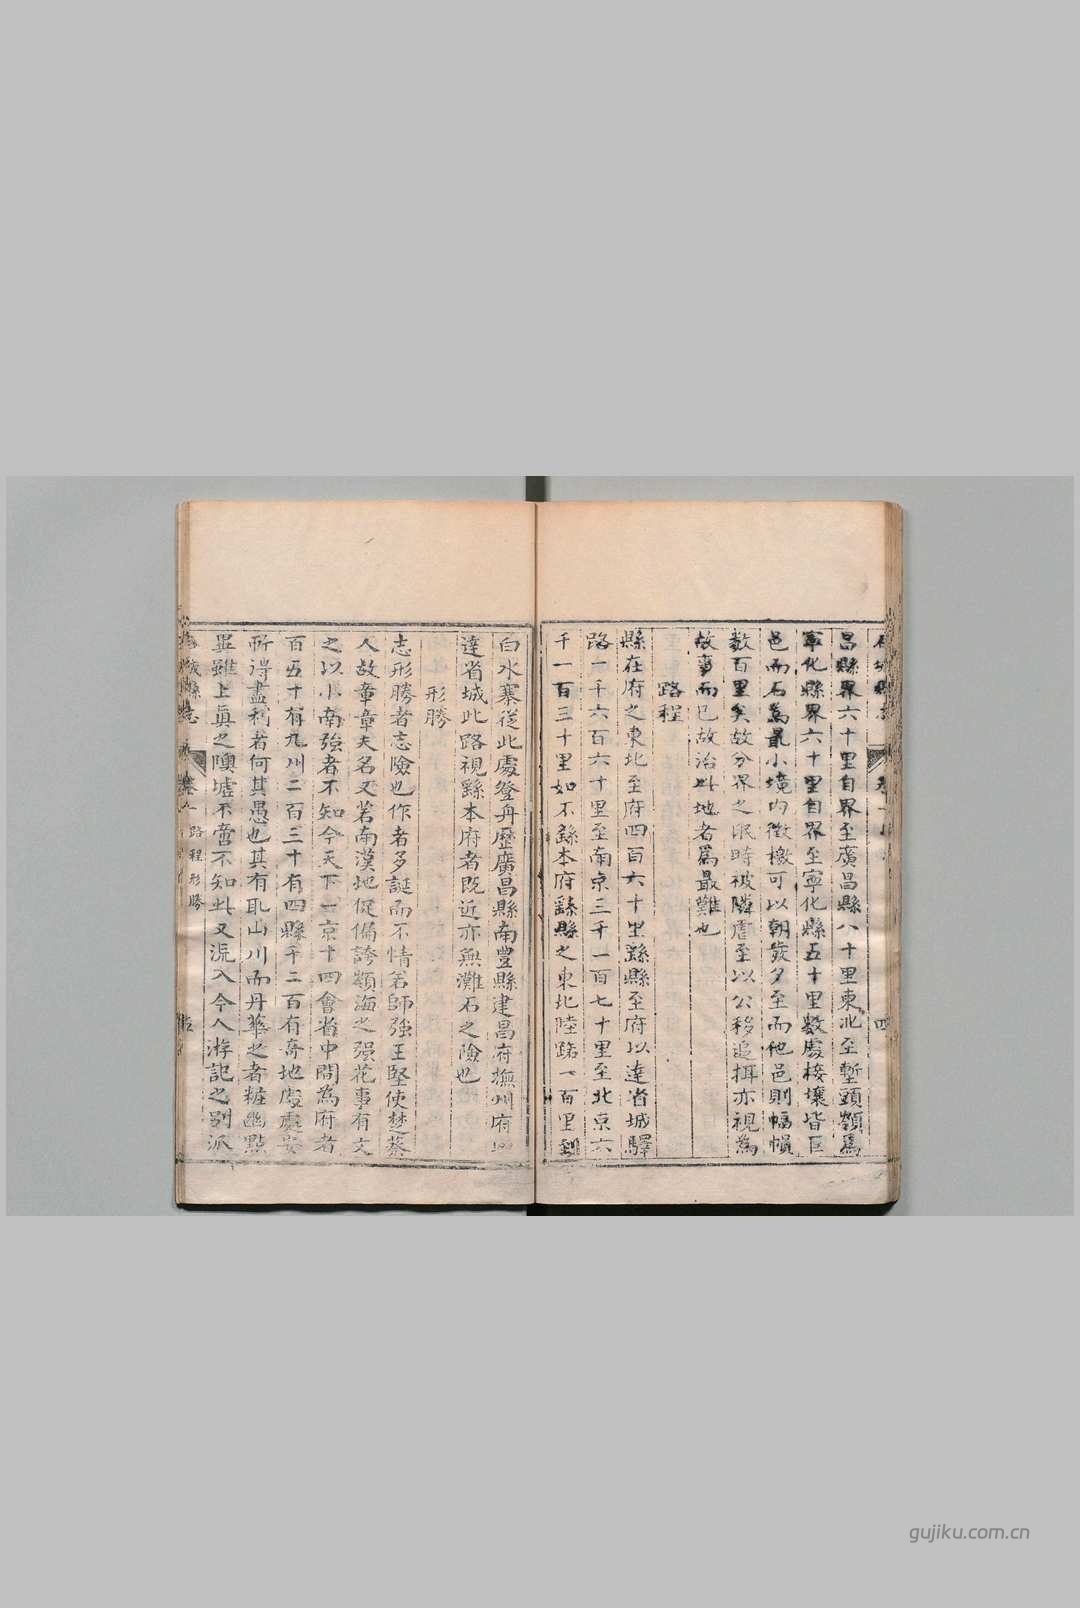 昌縣界六十里自界至廣昌縣八十里東北至塹頭嶺爲
寧化縣界六十里自界至寧化縣五十里數處接壤皆巨
邑而石爲最小境內徵檄可以朝發夕至而他邑則幅幀
數百里矣故分界之氓時被隣虐至以公移追捕亦視爲
故事而已故治此地者爲最難也
路程
縣在府之東北至府四百六十里繇縣至府以達省城驛
路一千六百六十里至南京三千一百七十里至北京六
千一百三十里如不繇本府繇縣之東北陸路一百里到
白水寨從此處登舟歷廣昌縣南豐縣建昌府撫州府以
達省城此路視繇本府者既近亦無灘石之險也
形勝
志形勝者志險也作者多誕而不情若師強王堅使楚蔡
人故章章夫名又若南漢地促備誇嶺海之強花事有文
之以小南強者不知今天下二京十四會省中間為府者
百五十有九州二百三十有四縣千二百有奇地處處安
所得盡利者何其愚也其有耻山川而丹華之者粧幽點
異雖上真之隩墟不啻不知此又流入今人游記之別派
石城縣志
卷一
路程形勝
五
四
gujiku.com.cn